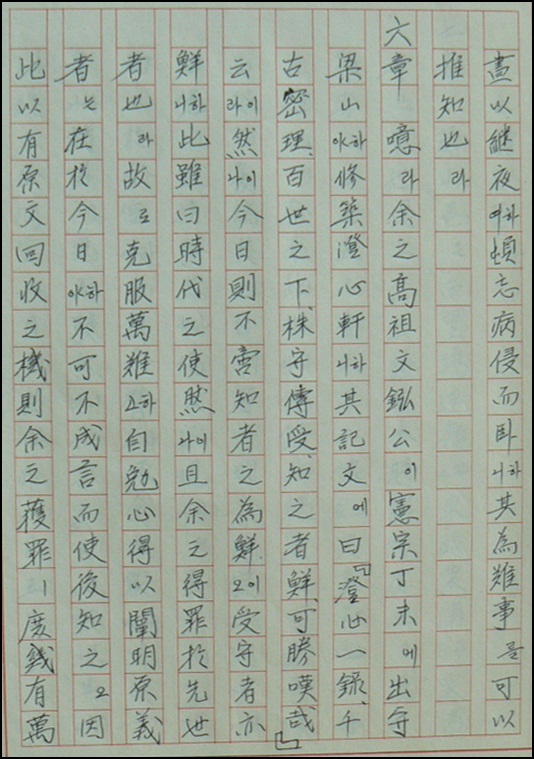 晝以継夜하여頓忘病侵而臥하니其為難事를可以
推知也라
六章 噫라余之高祖文鋐公이憲宗丁未에出守
梁山하야修築澄心軒하니其記文에曰『澄心一錄、千
古密理、百世之下、株守傳受、知之者鮮、可勝嘆哉』
云이라然이나今日則不啻知者之為鮮이오受守者亦
鮮하니此雖曰時代之使然이나且余之得罪於先世
者也라故로克服萬難하고自勉心得以闡明原義
者는在於今日하야不可不成言而使後知之오因
此以有原文回收之機則余之獲罪ㅣ度錢有萬